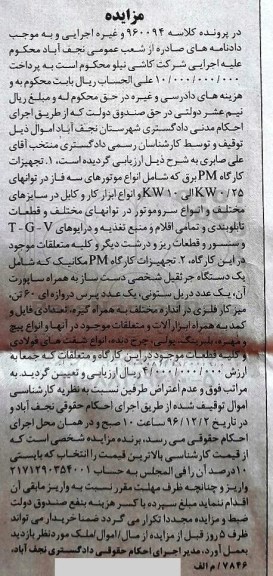 مزایده
در پرونده کلاسه ۹۶۰۰۹۴ و غیره اجرایی و به موجب
دادنامه های صادره از شعب عمومی نجف آباد محکوم
علیه اجرایی شرکت کاشی نیلو محکوم است به پرداخت
۱۰/۰۰۰/۰۰۰/۰۰۰ علی الحساب ریال بابت محکوم به و
هزینه های دادرسی و غیره در حق محکوم له و مبلغ ریال
نیم عشر دولتی در حق صندوق دولت که از طریق اجرای
احکام مدنی دادگستری شهرستان نجف آباد اموال ذیل
توقیف و توسط کارشناسان رسمی دادگستری منتخب آقای
علی صابری به شرح ذیل ارزیابی گردیده است، ۱. تجهیزات
کارگاه PM برق که شامل انواع موتورهای سه فاز در توانهای
KW۰/۲۵ الی KW۱۰ و انواع ابزار کار و کابل در سایزهای
مختلف و انواع سروموتور در توانهای مختلف و قطعات
تابلوبندی و تمامی اقلام و منبع تغذیه و درایوهای T-G-V
و سنسور و قطعات ریز و درشت دیگر و کلیه متعلقات موجود
در این کارگاه، ۲. تجهیزات کارگاه PM مکانیک که شامل
یک دستگاه جرثقیل شخصی دست ساز به همراه ساپورت
آن، یک عدد دریل ستونی، یک عدد پرس دروازه ای ۶۰ تن،
میز کار فلزی در اندازه مختلف به همراه گیره، تعدادی فایل و
کمد به همراه ابزارآلات و متعلقات موجود در آنها و انواع پیچ
و مهره، بلبرینگ، پولی، چرخ دنده، انواع شفت های فولادی
و کلیه قطعات موجود در این کارگاه و متعلقات که جمعا به
ارزش ۴/۰۰۰/۰۰۰/۰۰۰ ریال ارزیابی و تعیین گردید. به
مراتب فوق و عدم اعتراض طرفین نسبت به نظریه کارشناسی
اموال توقیف شده از طریق اجرای احکام حقوقی نجف آباد و
در تاریخ ۹۶/۱۲/۲ ساعت ۱۰ صبح و در همان محل اجرای
احکام حقوقی می رسد، برنده مزایده شخصی است که
از قیمت کارشناسی بالاترین قیمت را انتخاب که بایستی
۱۰ درصد آن را فی المجلس به حساب ۲۱۷۱۲۹۰۳۵۴۰۰۱
واریز و چنانچه ظرف مهلت مقرر نسبت به واریز مابقی آن
اقدام ننماید مبلغ سپرده با کسر هزینه بنفع صندوق دولت
ضبط و مزایده مجددا تکرار می گردد ضمنا خریدار می تواند
ظرف ۵ روز قبل از مزایده از مال/اموال/ملک موردنظر بازدید
بعمل آورد، مدیر اجرای احکام حقوقی دادگستری نجف آباد،
۷۸۴۶/ م الف